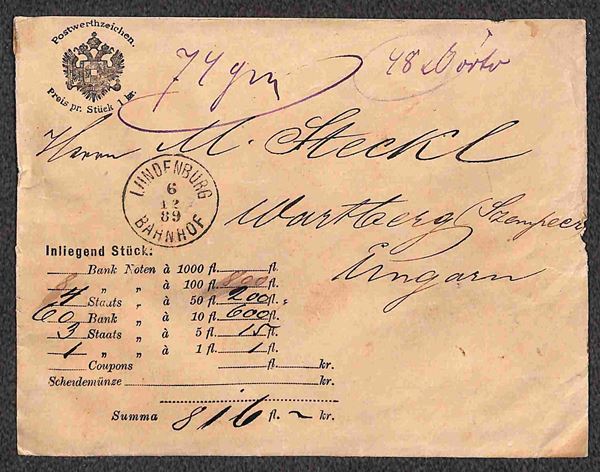 Postwerthzeichen.
Preis pr. Stück 1 kr.
74 gm
48 Porto
Herrn M. Steckl
LUNDENBURG
6
12
89
BAHNHOF
Wartberg (Szempcz
Ungarn
Inliegend Stück:
Bank Noten à 1000 fl. fl.
8 „ „ à 100 fl. 800 fl.
4 Staats „ à 50 fl. 200 fl.
60 Bank „ à 10 fl. 600 fl.
3 Staats „ à 5 fl. 15 fl.
1 „ „ à 1 fl. 1 fl.
Coupons fl. kr.
Scheidemünze kr.
Summa 816 fl. ~ kr.